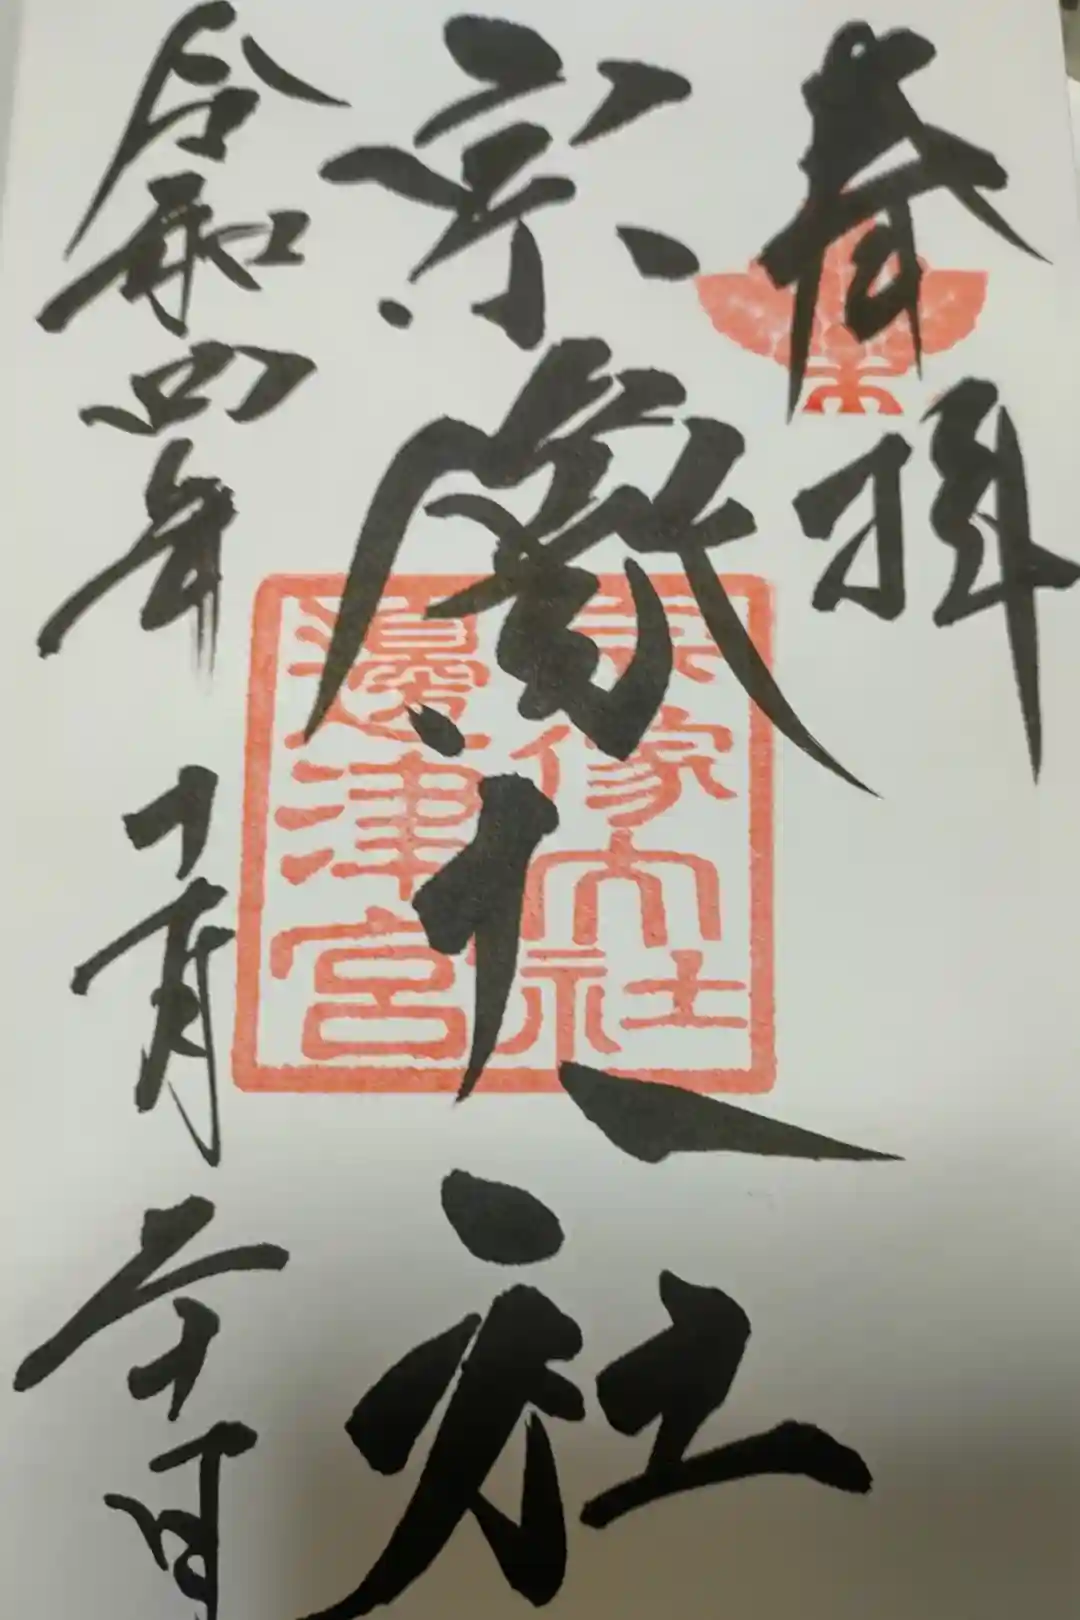 奉拝
宗像大社
令和四年
月
日
宗像大社
邊津宮